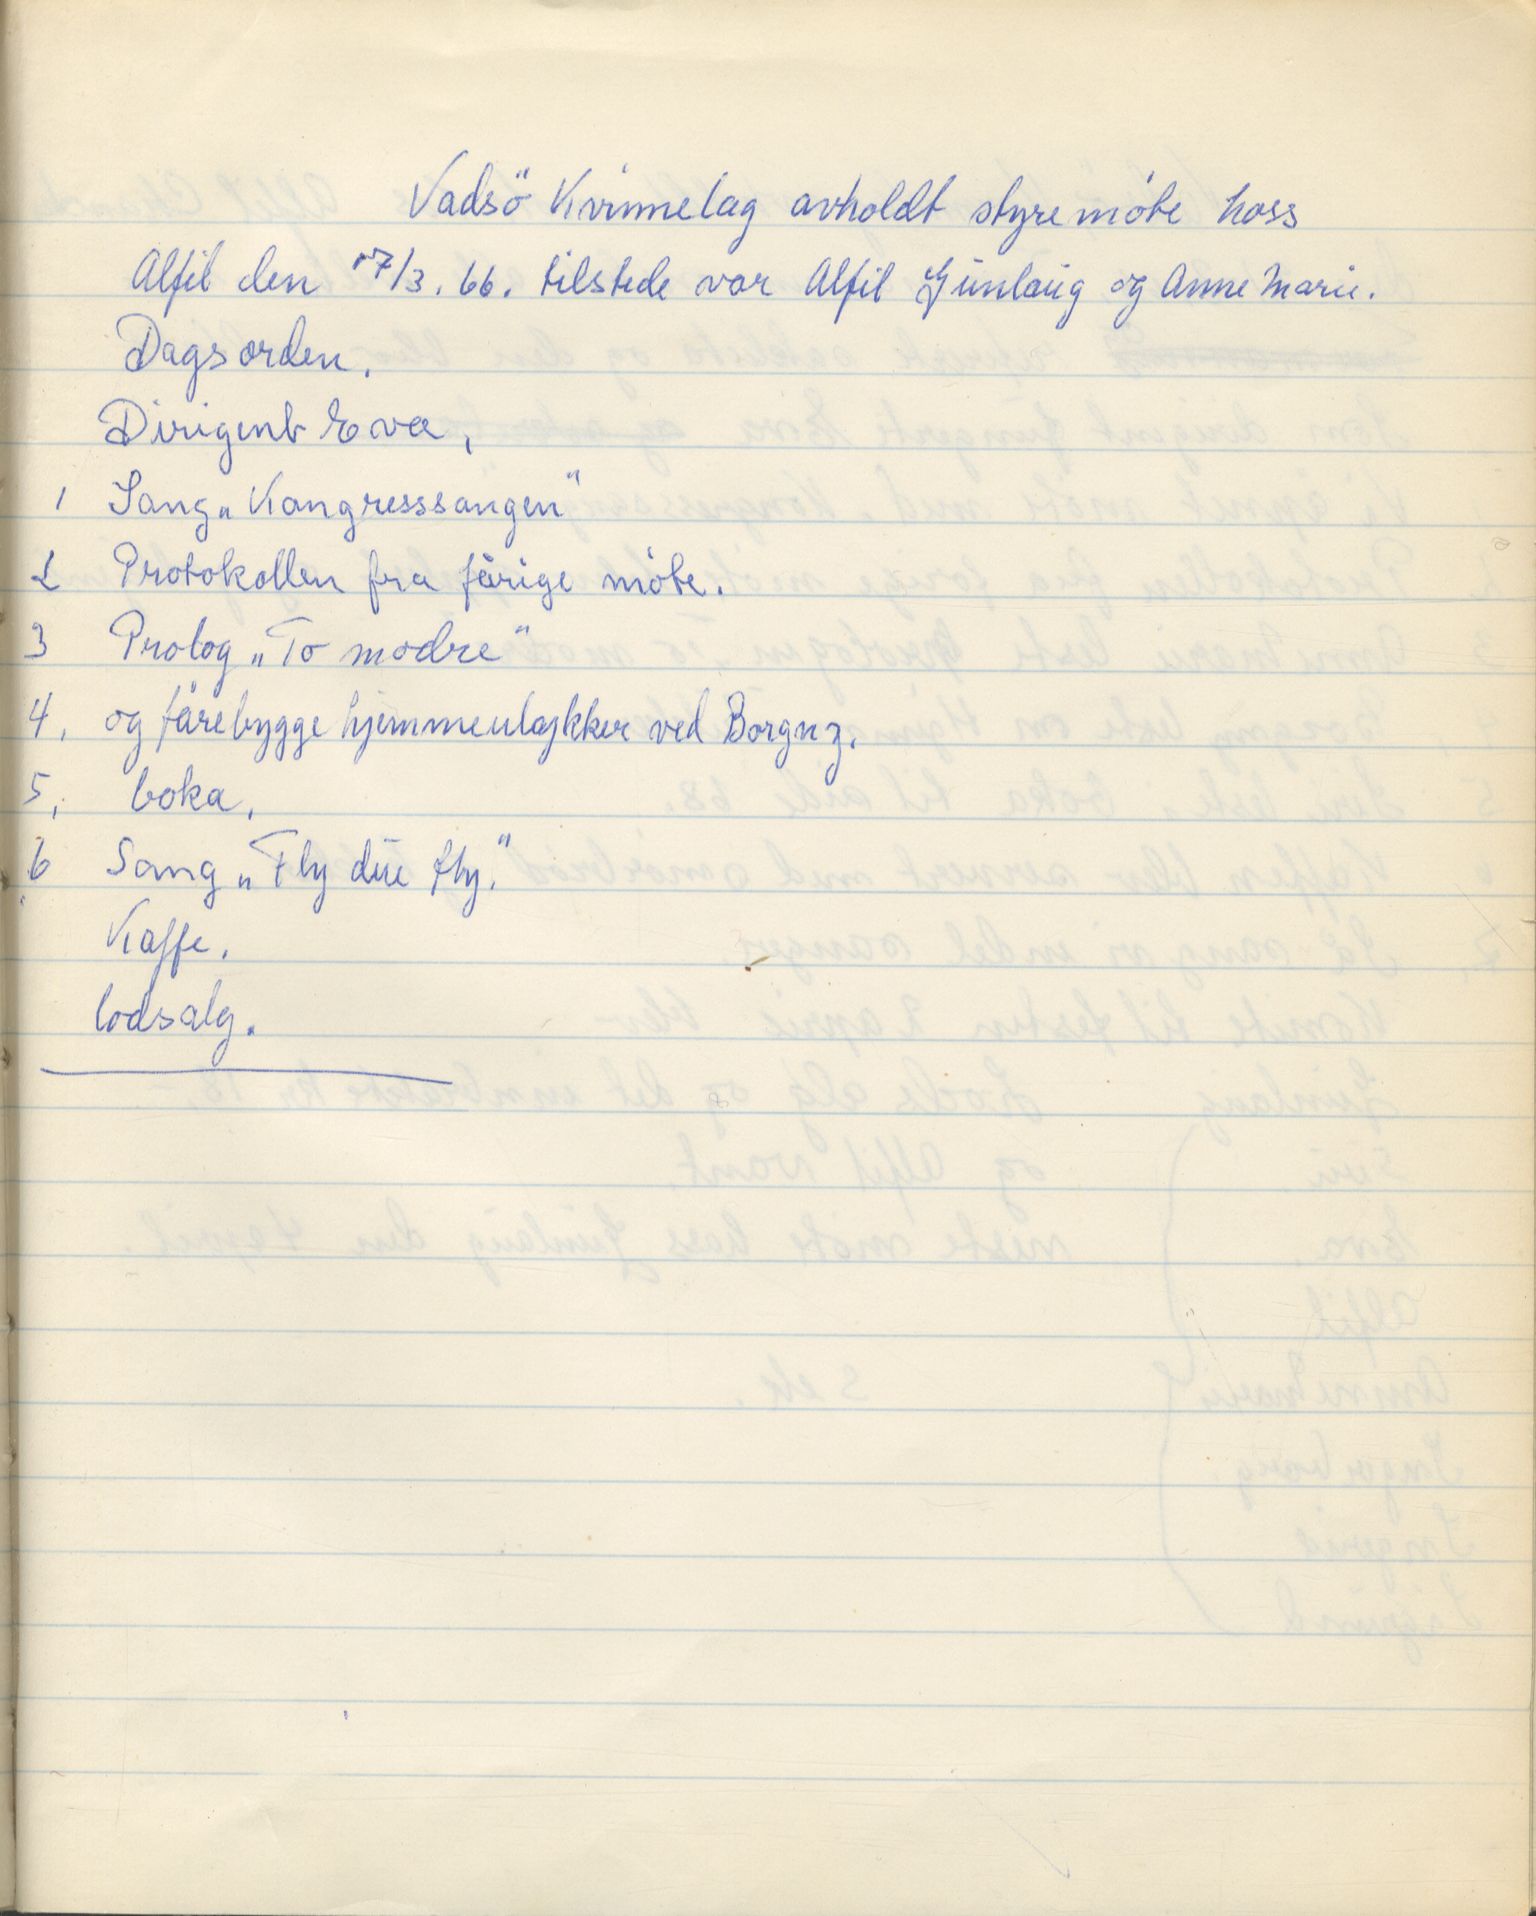 Vadsö Kvinnelag avholdt styremöte hoss
Alfil den 17/3. 66. tilstede var Alfil Gunlaug og Anne Marie.
Dagsorden.
Dirigent Eva.
1 Sang „Kongresssangen"
2 Protokollen fra förige möte.
3 Prolog „To modre"
4. og förebygge hjemmeulykker ved Borgny.
5. boka.
6 Sang „Fly due fly."
Kaffe.
lodsalg.